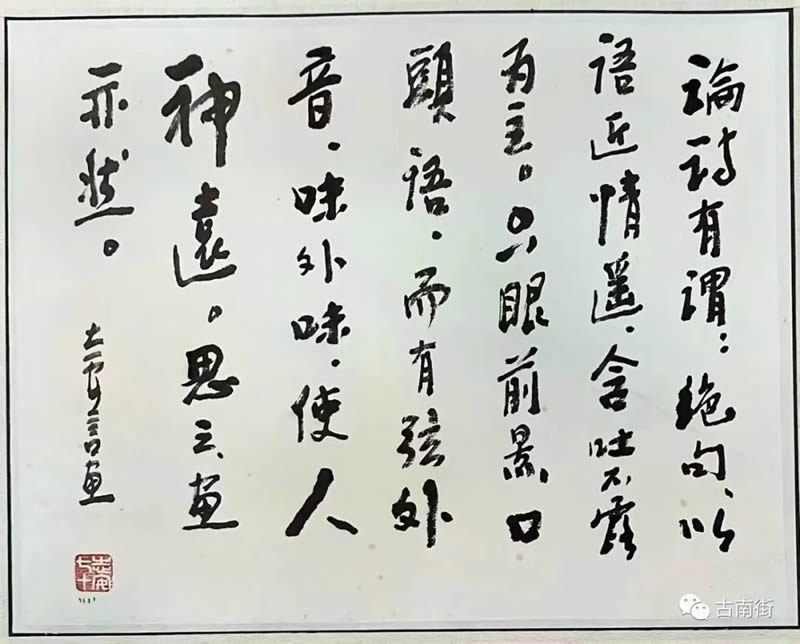 論詩有謂：絶句、以
語近情遥、含吐不露
为主。只眼前景、口
頭語、而有弦外
音、味外味、使人
神遠。思之画
亦然。
言画
七十
古南街